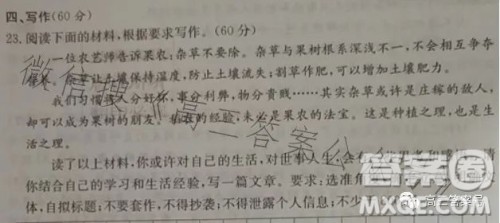 四、写作(60分)
23. 阅读下面的材料,根据要求写作。(60分)
一位农艺师告诉果农:杂草不要除。杂草与果树根系深浅不一,不会相互争夺
让土壤保持湿度,防止土壤流失;割草作肥,可以增加土壤肥力。
我们习惯将人分好坏,事分利弊,物分贵贱……其实杂草或许是庄稼的敌人,
却可以成为果树的朋友。有农的经验,未必是果农的法宝。这是种植之理,也是生
活之理。
读了以上材料,你或许对自己的生活,对世事人生,会有
你结合自己的学习和生活经验,写一篇文章。要求:选准角
体,自拟标题;不要套作,不得抄袭;不得泄露个人信息;不少
微信搜 高一答案公
答案圈
MXQE.COM
高三答案号